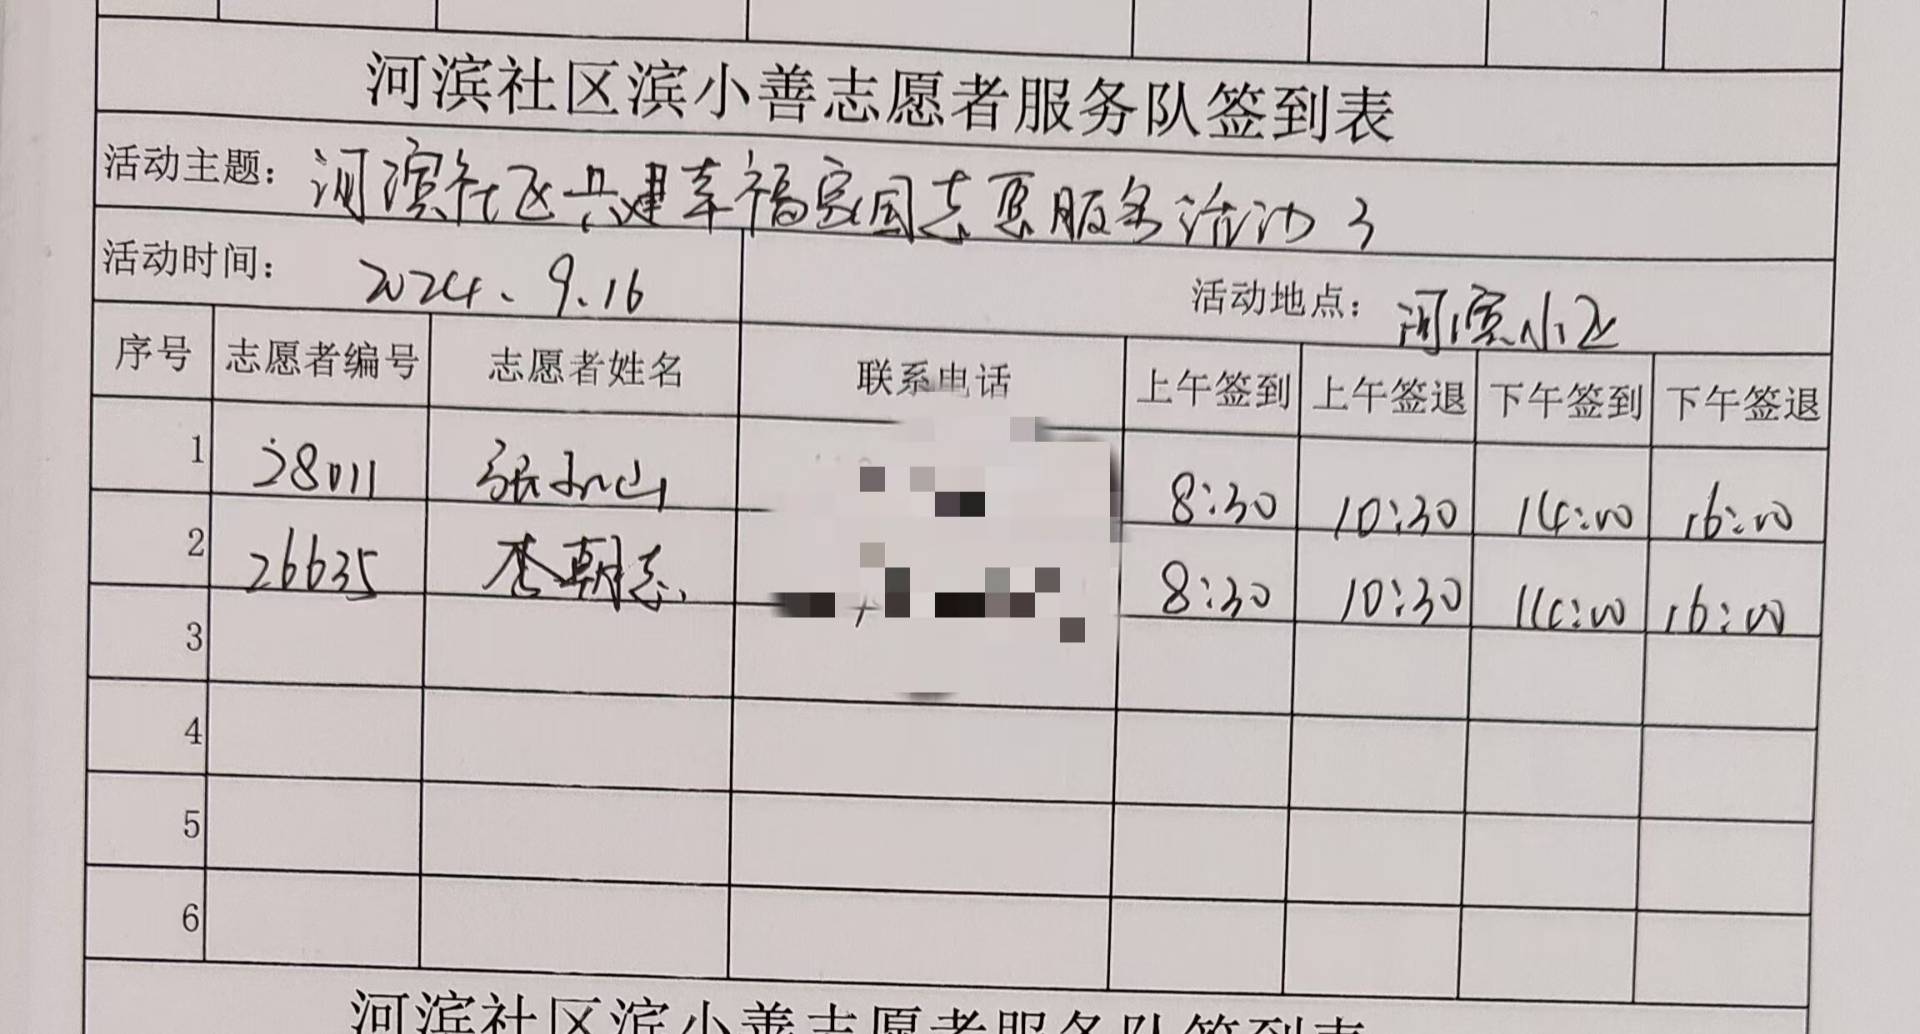 河滨社区滨小善志愿者服务队签到表
活动主题：河滨社区共建幸福家园志愿服务活动3
活动时间： 2024.9.16 活动地点：河滨小区
序号 志愿者编号 志愿者姓名 联系电话 上午签到 上午签退 下午签到 下午签退
1 28011 张和山 8:30 10:30 14:00 16:00
2 26635 李朝志 8:30 10:30 14:00 16:00
3
4
5
6
河滨社区滨小善志愿者服务队签到表